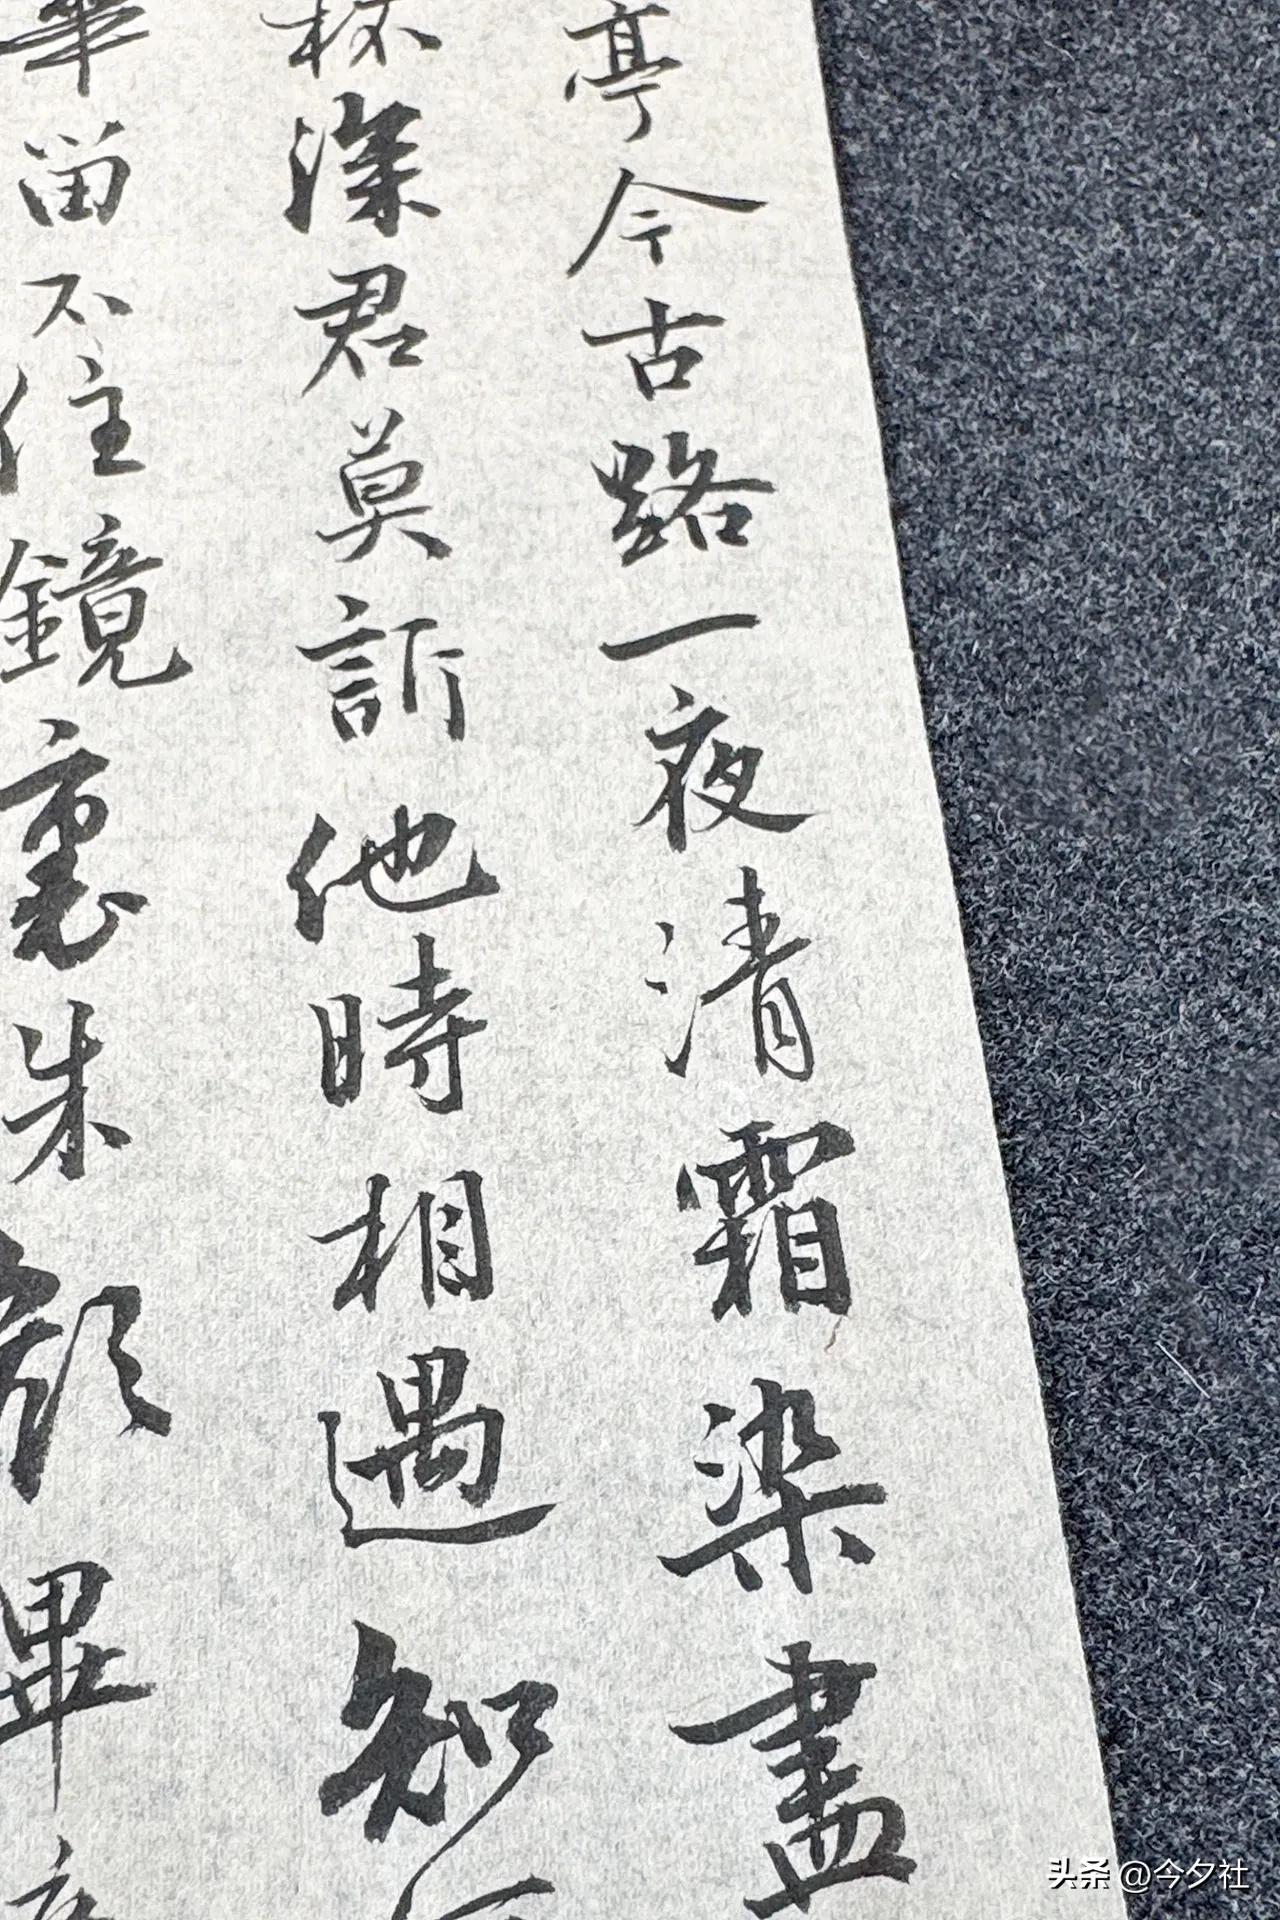 亭今古路一夜清霜染盡
杯深君莫訴他時相遇知
華留不住鏡裏朱顏畢
头条 @今夕社